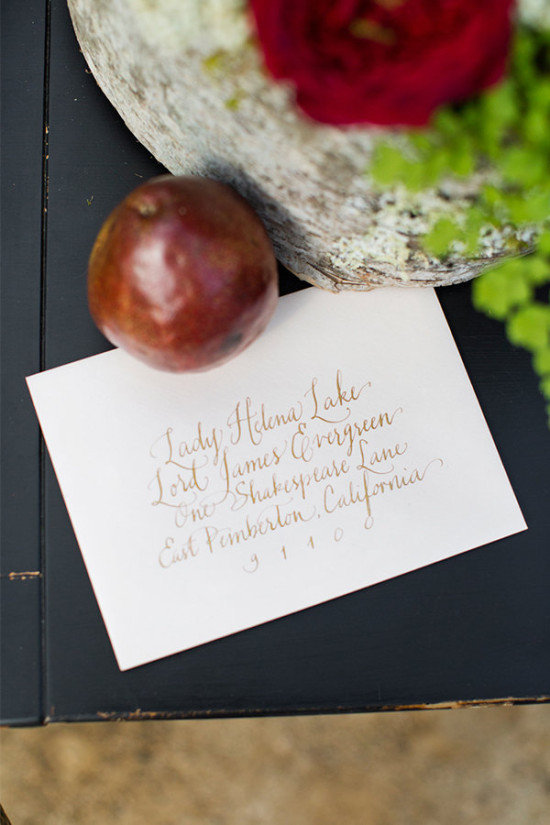 Lady Helena Lake
Lord James Evergreen
One Shakespeare Lane
East Pemberton, California
91100